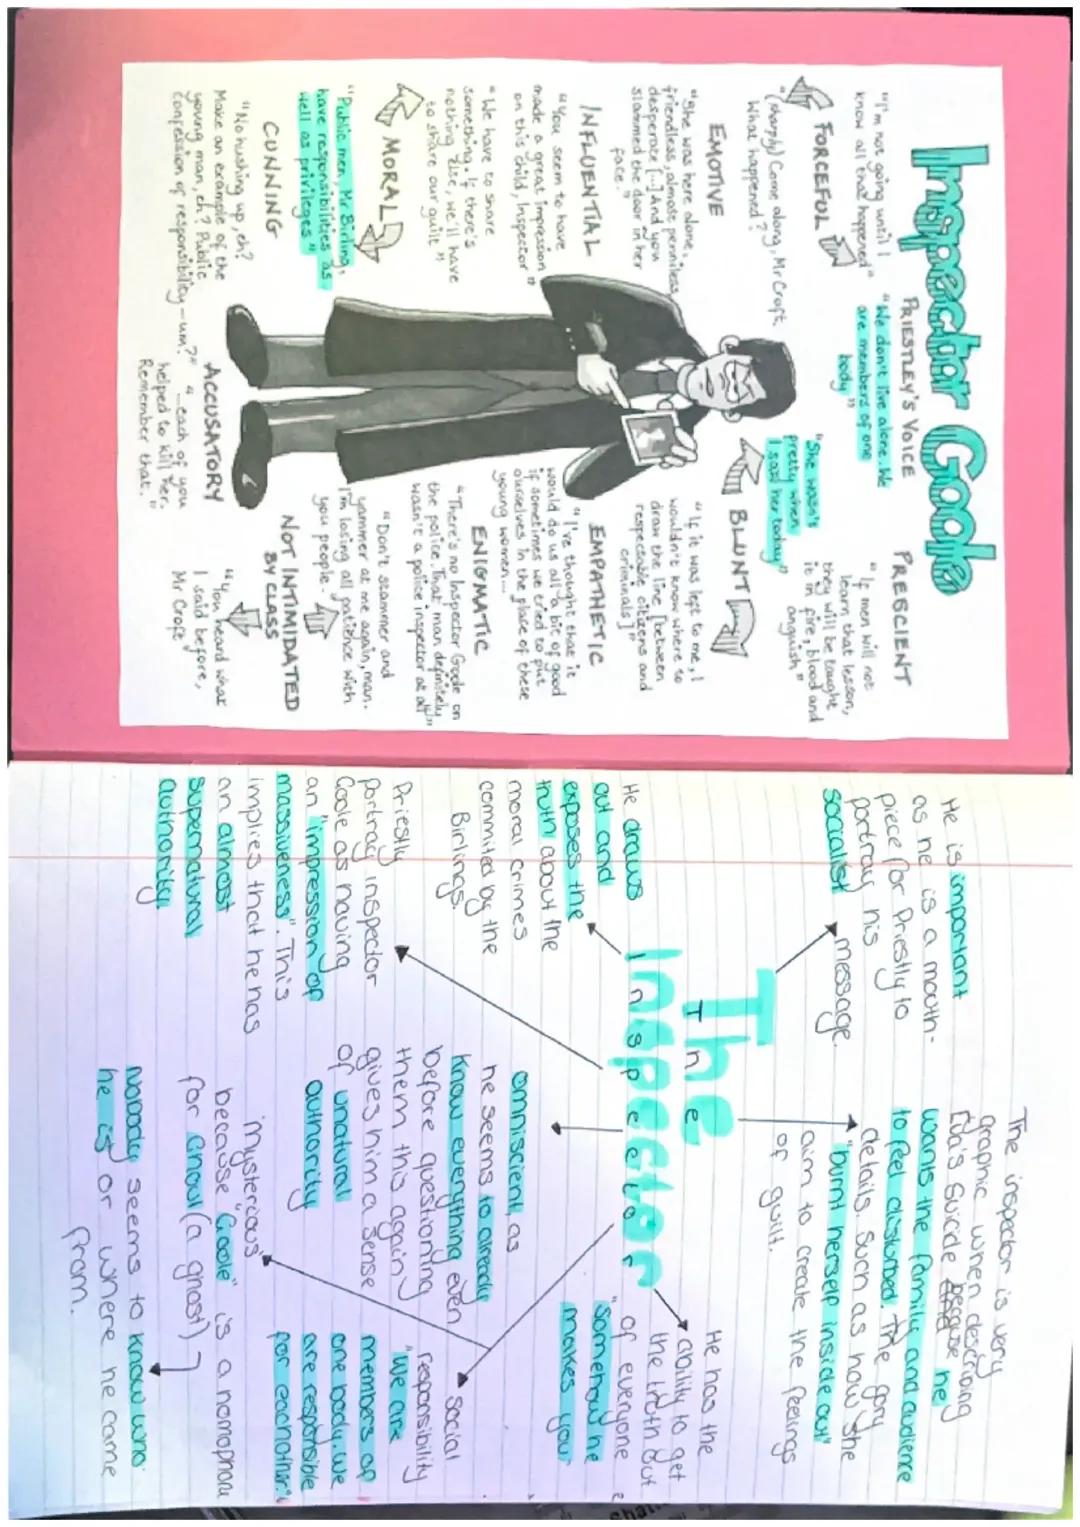 Inspector Goole
PRIESTLEY'S VOICE
"We don't live alone. We
are members of one
body"
PRESCIENT
"If men will not
learn that lesson,
they will be taught
it in fire, blood and
anguish"
"I'm not going until I
know all that happened"
FORCEFUL
"(sharply) Come along, Mr Croft.
What happened?
"She was's
pretty when
I saw her today"
BLUNT
"If it was left to me, I
wouldn't know where to
draw the line [between
respectable citizens and
criminals]"
EMOTIVE
"She was here alone,
friendless, almost penniless,
desperate [...] And you
slammed the door in her
face."
EMPATHETIC
"I've thought that it
would do us all a bit of good
if sometimes we tried to put
ourselves in the place of these
young women...
INFLUENTIAL
"You seem to have
made a great impression
on this child, Inspector"
"We have to share
something. If there's
nothing else, we'll have
to share our guilt"
ENIGMATIC
"There's no Inspector Goole on
the police. That man definitely
wasn't a police inspector at all"
"Don't stammer and
yammer at me again, man.
I'm losing all patience with
you people.
MORAL
"Public men, Mr Birling,
have responsibilities as
well as privileges"
NOT INTIMIDATED
BY CLASS
"You heard what
I said before,
Mr Croft"
CUNNING
"No hushing up, eh?
Make an example of the
young man, eh? Public
confession of responsibility-um?"
ACCUSATORY
"...each of you
helped to kill her.
Remember that."
He is important
as he is a mouth-
piece for Priestly to
portray his
socialist
message.
The inspector is very
graphic when describing
Eva's suicide because he
wants the family and audience
to feel disturbed. The gory
details. Such as how she
"burnt herself inside out"
aim to create the feelings
of guilt.
The
The
Inspector
Inspector
He draws
out and
exposes the
truth about the
moral crimes
commited by the
Birlings.
He has the
ability to get
the truth out
of everyone
"somehow he
makes you"
Priestly
portray inspector
Goole as having
an "impression of
massiveness". This
implies that he has
an almost
supernatural
authority.
omniscient, as
he seems to already
know everything even
before questioning
them this again
gives him a sense
of unatural
authority
social
responsibility
"We are
members of
one body. we
are responsible
for eachother."
mysterious
because "Goole" is a homophone
for Ghoul (a ghost)
Nobody seems to know who
he is or where he came
from.